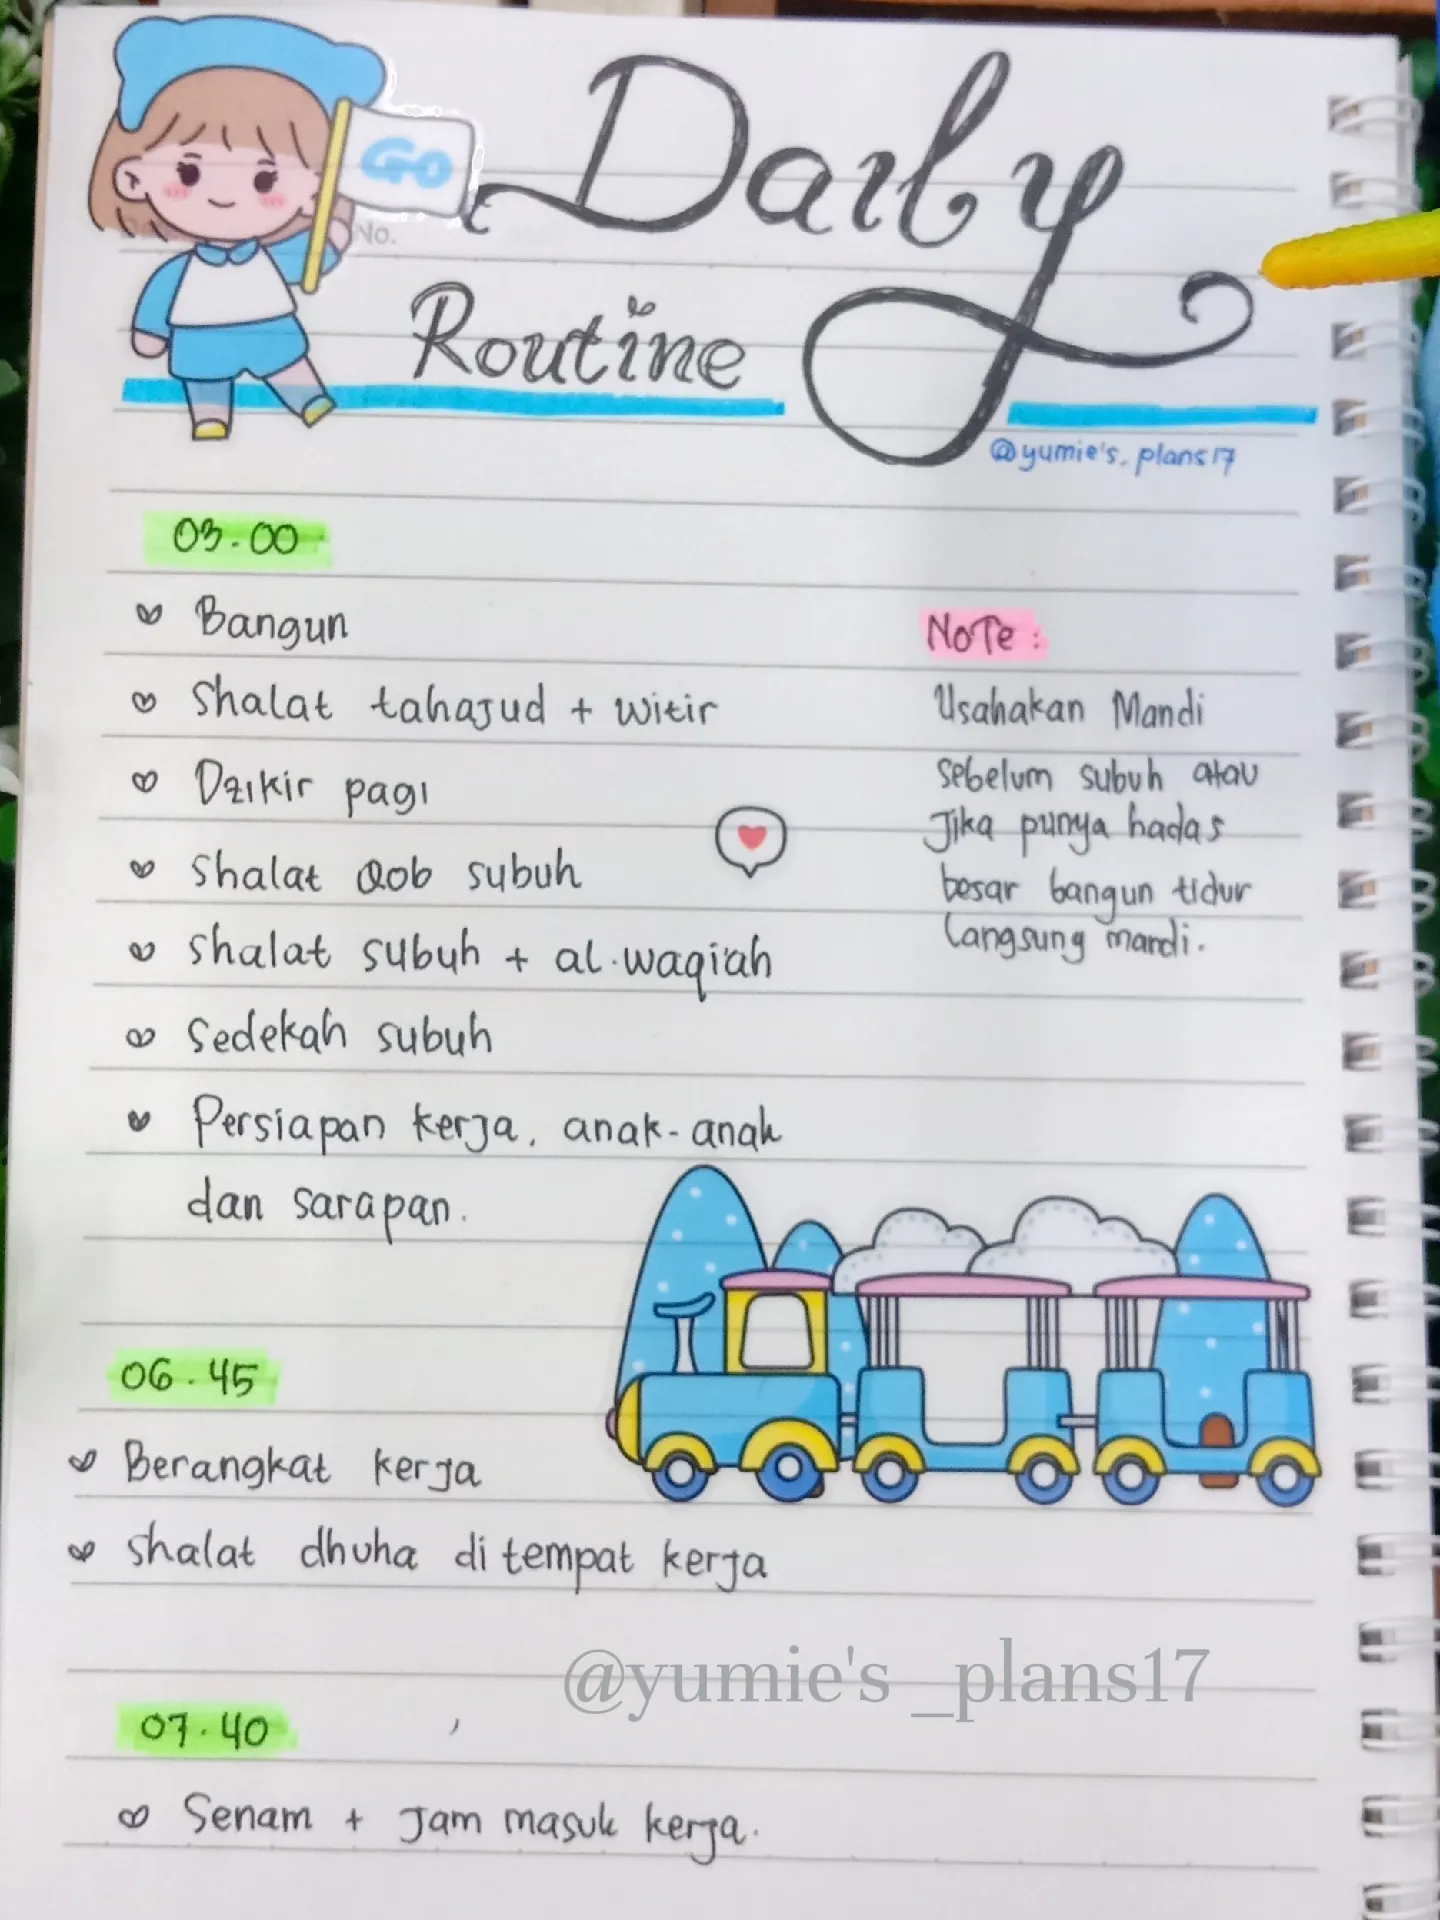 Go
No.
Daily
Routine
@yumie's_plans17
03.00
Bangun
Shalat tahajud + witir
Dzikir pagi
Shalat Qob subuh
Shalat subuh + al-waqi'ah
Sedekah subuh
Persiapan kerja, anak-anak
dan sarapan.
NoTe :
Usahakan Mandi
sebelum subuh atau
Jika punya hadas
besar bangun tidur
langsung mandi.
06.45
Berangkat kerja
Shalat dhuha di tempat kerja
@yumie's _plans17
07.40
Senam + Jam masuk kerja.